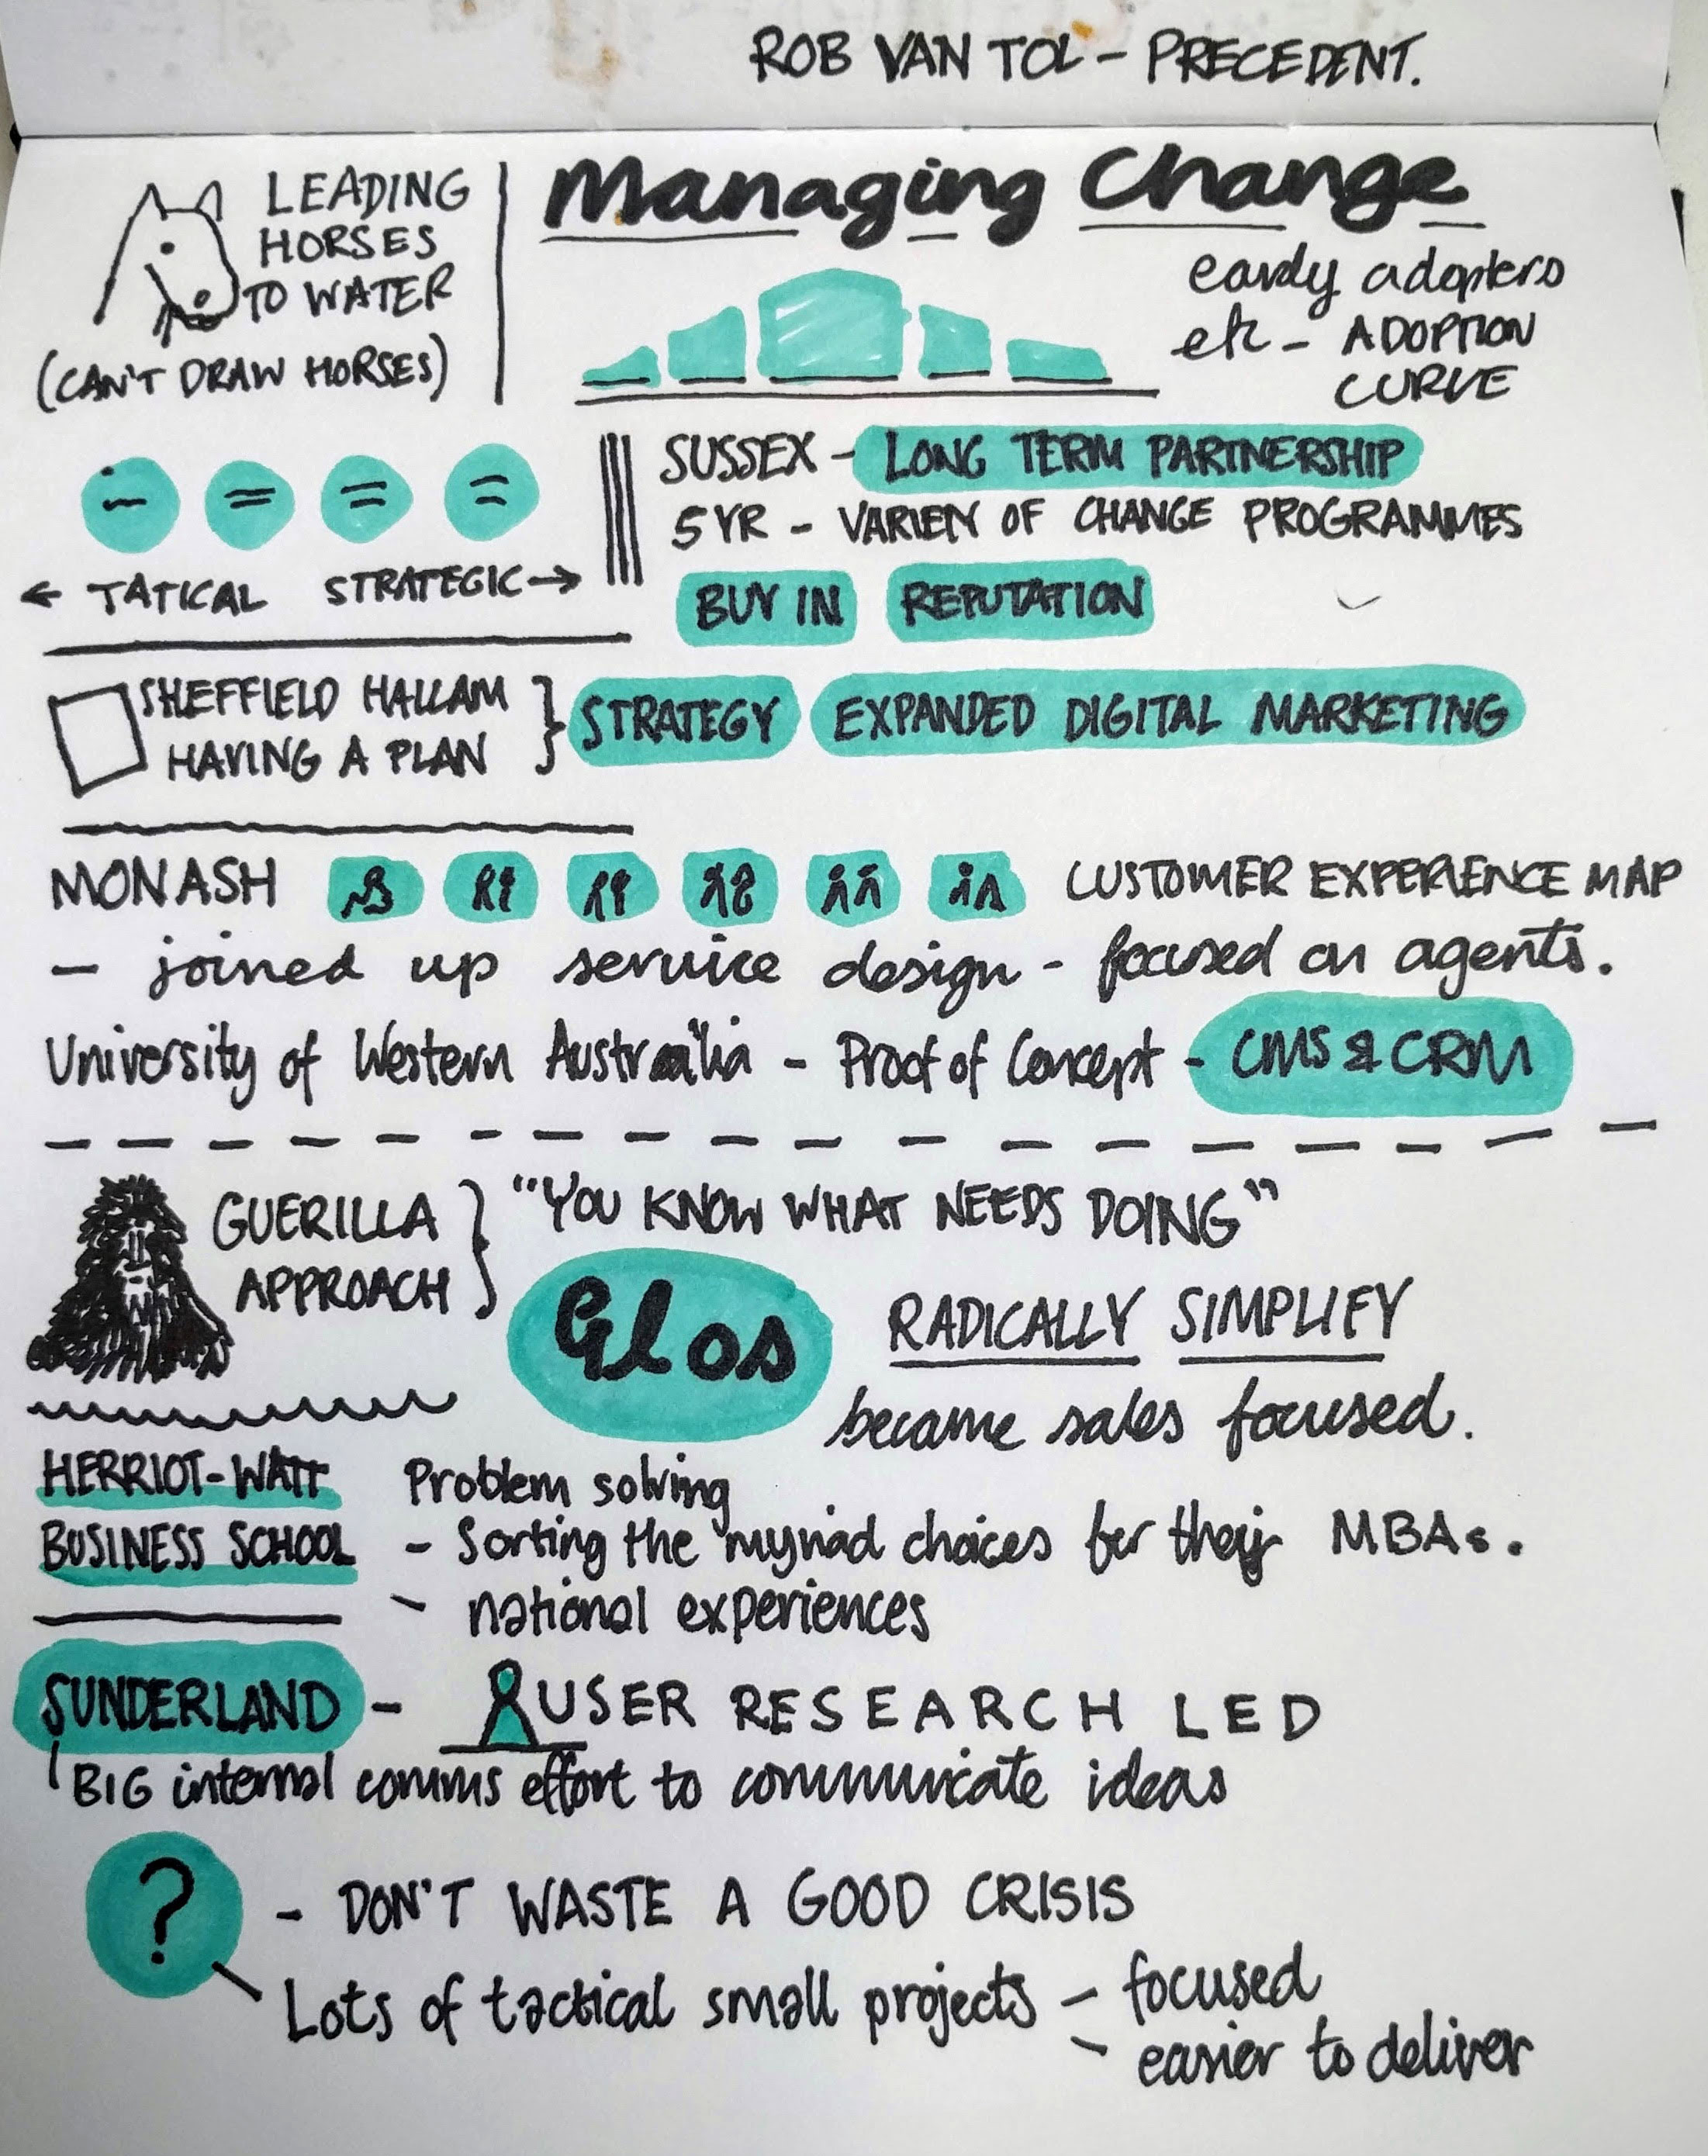 ROB VAN TOL - PRECEDENT.
LEADING
HORSES
TO WATER
(CAN'T DRAW HORSES)
Managing Change
early adopters
etc - ADOPTION
CURVE
← TATICAL STRATEGIC →
SUSSEX - LONG TERM PARTNERSHIP
5 YR - VARIETY OF CHANGE PROGRAMMES
BUY IN REPUTATION
SHEFFIELD HALLAM
HAVING A PLAN
STRATEGY EXPANDED DIGITAL MARKETING
MONASH CUSTOMER EXPERIENCE MAP
- joined up service design - focused on agents.
University of Western Australia - Proof of Concept - CMS & CRM
GUERILLA
APPROACH
"YOU KNOW WHAT NEEDS DOING"
Glos
RADICALLY SIMPLIFY
became sales focused.
HERRIOT-WATT
BUSINESS SCHOOL
Problem solving
- Sorting the myriad choices for their MBAs.
- national experiences
SUNDERLAND - USER RESEARCH LED
BIG internal comms effort to communicate ideas
?
- DON'T WASTE A GOOD CRISIS
Lots of tactical small projects - focused
- easier to deliver